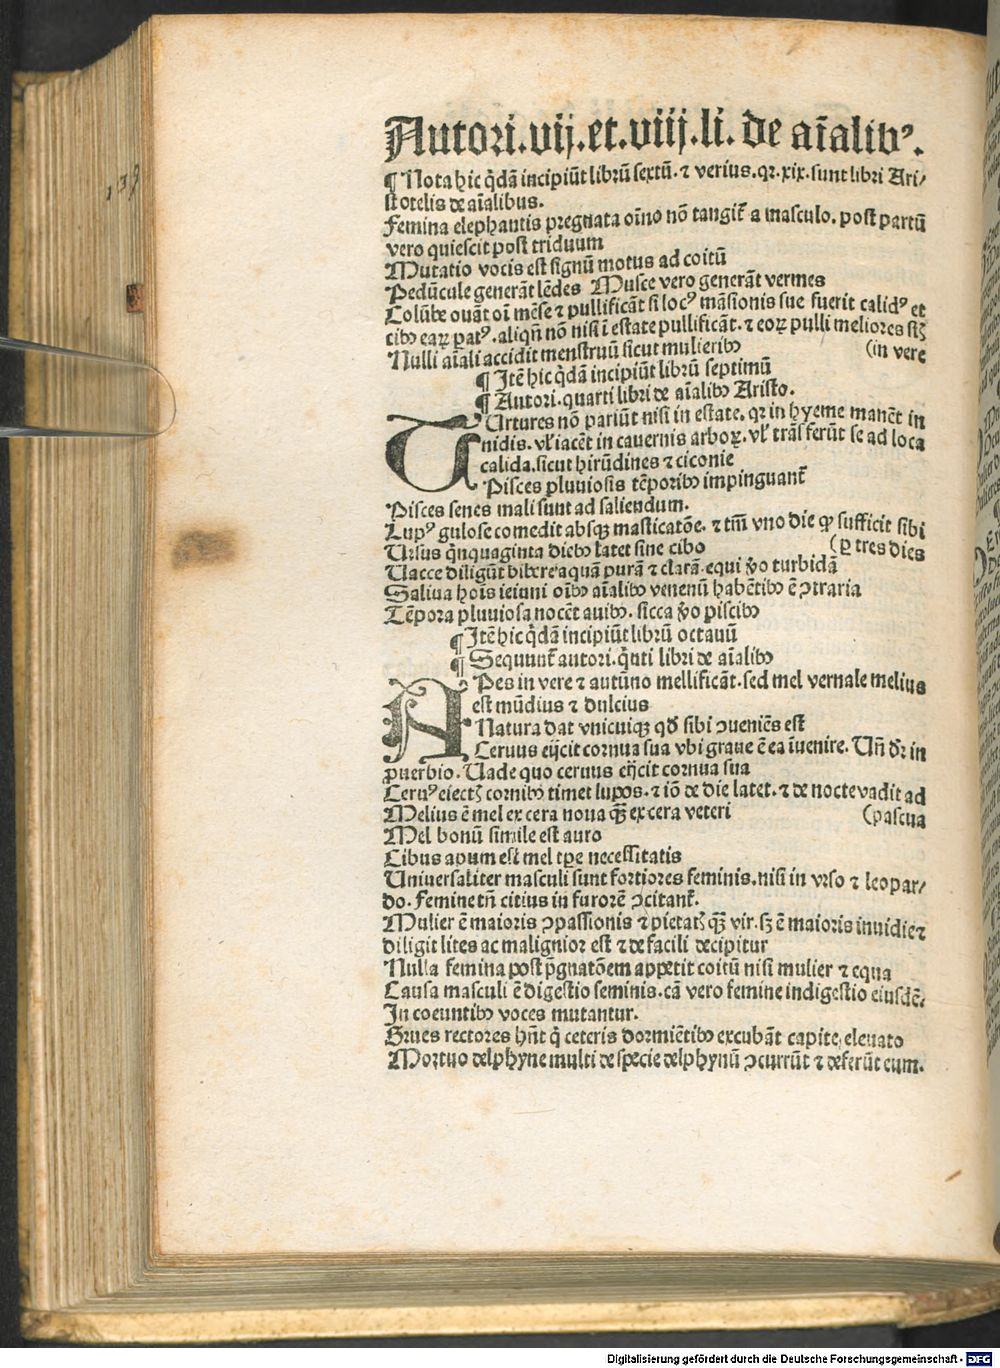 Autori.vij.et.viij.li. de aīalibꝰ.
139
¶ Nota hic q̄dā incipiūt librū sextū. ⁊ verius. qꝛ. xix. sunt libri Ari/
stotelis de aīalibus.
Femina elephantis pregnata oīno nō tangit̄ a masculo. post partū
vero quiescit post triduum
Mutatio vocis est signū motus ad coitū
Pedūcule generāt lēdes Musce vero generāt vermes
Colūbe ouāt oī mēse ⁊ pullificāt si locꝰ māsionis sue fuerit calidꝰ et
cibꝰ eaꝝ patꝰ. aliqn̄ nō nisi ī estate pullificāt. ⁊ eoꝝ pulli meliores sūt
Nulli aīali accidit menstruū sicut mulieribꝰ (in vere
¶ Itē hic q̄dā incipiūt librū septimū
¶ Autori. quarti libri de aīalibꝰ Aristo.
TUrtures nō pariūt nisi in estate. qꝛ in hyeme manēt in
nidis. vl̓ iacēt in cauernis arboꝝ. vl̓ trāsferūt se ad loca
calida. sicut hirūdines ⁊ ciconie
Pisces pluuiosis tēporibꝰ impinguant̄
Pisces senes mali sunt ad saliendum.
Lupꝰ gulose comedit absqꝫ masticatōe. ⁊ tm̄ vno die qd̓ sufficit sibi
Ursus q̄nquaginta diebꝰ latet sine cibo (ꝑ tres dies
Uacce diligūt bibere aquā purā ⁊ clarā. equi v̓o turbidā
Saliua hoīs ieiuni oībꝰ aīalibꝰ venenū habētibꝰ ē ꝯtraria
Tēpora pluuiosa nocēt auibꝰ. sicca v̓o piscibꝰ
¶ Itē hic q̄dā incipiūt librū octauū
¶ Sequunt̄ autori. q̄nti libri de aīalibꝰ
APes in vere ⁊ autūno mellificāt. sed mel vernale melius
est mūdius ⁊ dulcius
Natura dat vnicuiqꝫ qd̓ sibi ꝯueniēs est
Ceruus eijcit cornua sua vbi graue ē ea īuenire. Un̄ dr̄ in
ꝓuerbio. Uade quo ceruus eijcit cornua sua
Ceruꝰ eiectꝭ cornibꝰ timet lupos. ⁊ iō de die latet. ⁊ de nocte vadit ad
Melius ē mel ex cera noua qꝫ̄ ex cera veteri (pascua
Mel bonū simile est auro
Cibus apum est mel tꝑe necessitatis
Uniuersaliter masculi sunt fortiores feminis. nisi in vrso ⁊ leopar/
do. Femine tn̄ citius in furorē ꝯcitant̄.
Mulier ē maioris ꝯpassionis ⁊ pietatꝭ qꝫ̄ vir. sꝫ ē maioris inuidie ⁊
diligit lites ac malignior est ⁊ de facili decipitur
Nulla femina post p̄gnatōem appetit coitū nisi mulier ⁊ equa
Causa masculi ē digestio seminis. cā vero femine indigestio eiusdē.
In coeuntibꝰ voces mutantur.
Grues rectores hn̄t q̄ ceteris dormiētibꝰ excubāt capite eleuato
Mortuo delphyne multi de specie delphynū ꝯcurrūt ⁊ deferūt eum.
Digitalisierung gefördert durch die Deutsche Forschungsgemeinschaft - DFG